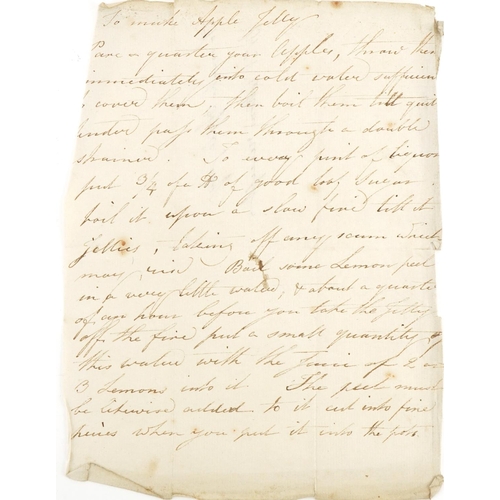 To make Apple Jelly
Pare & quarter your Apples, throw them
immediately into cold water sufficien
to cover them, then boil them till quit
tender pass them through a double
strainer. To every pint of liquor
put 3/4 of a lb of good loaf Sugar
boil it upon a slow fire till it
Jellies, taking off any scum which
may rise Boil some Lemon peel
in a very little water, & about a quarte
of an hour before you take the Jelly
off the fire put a small quantity of
this water with the Juice of 2 or
3 Lemons into it The peel must
be likewise added to it cut into fine
peices when you put it into the pots